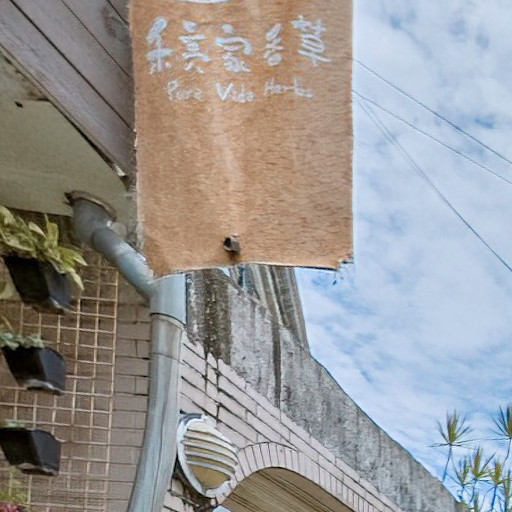 家香草
Pure Vida Herbs